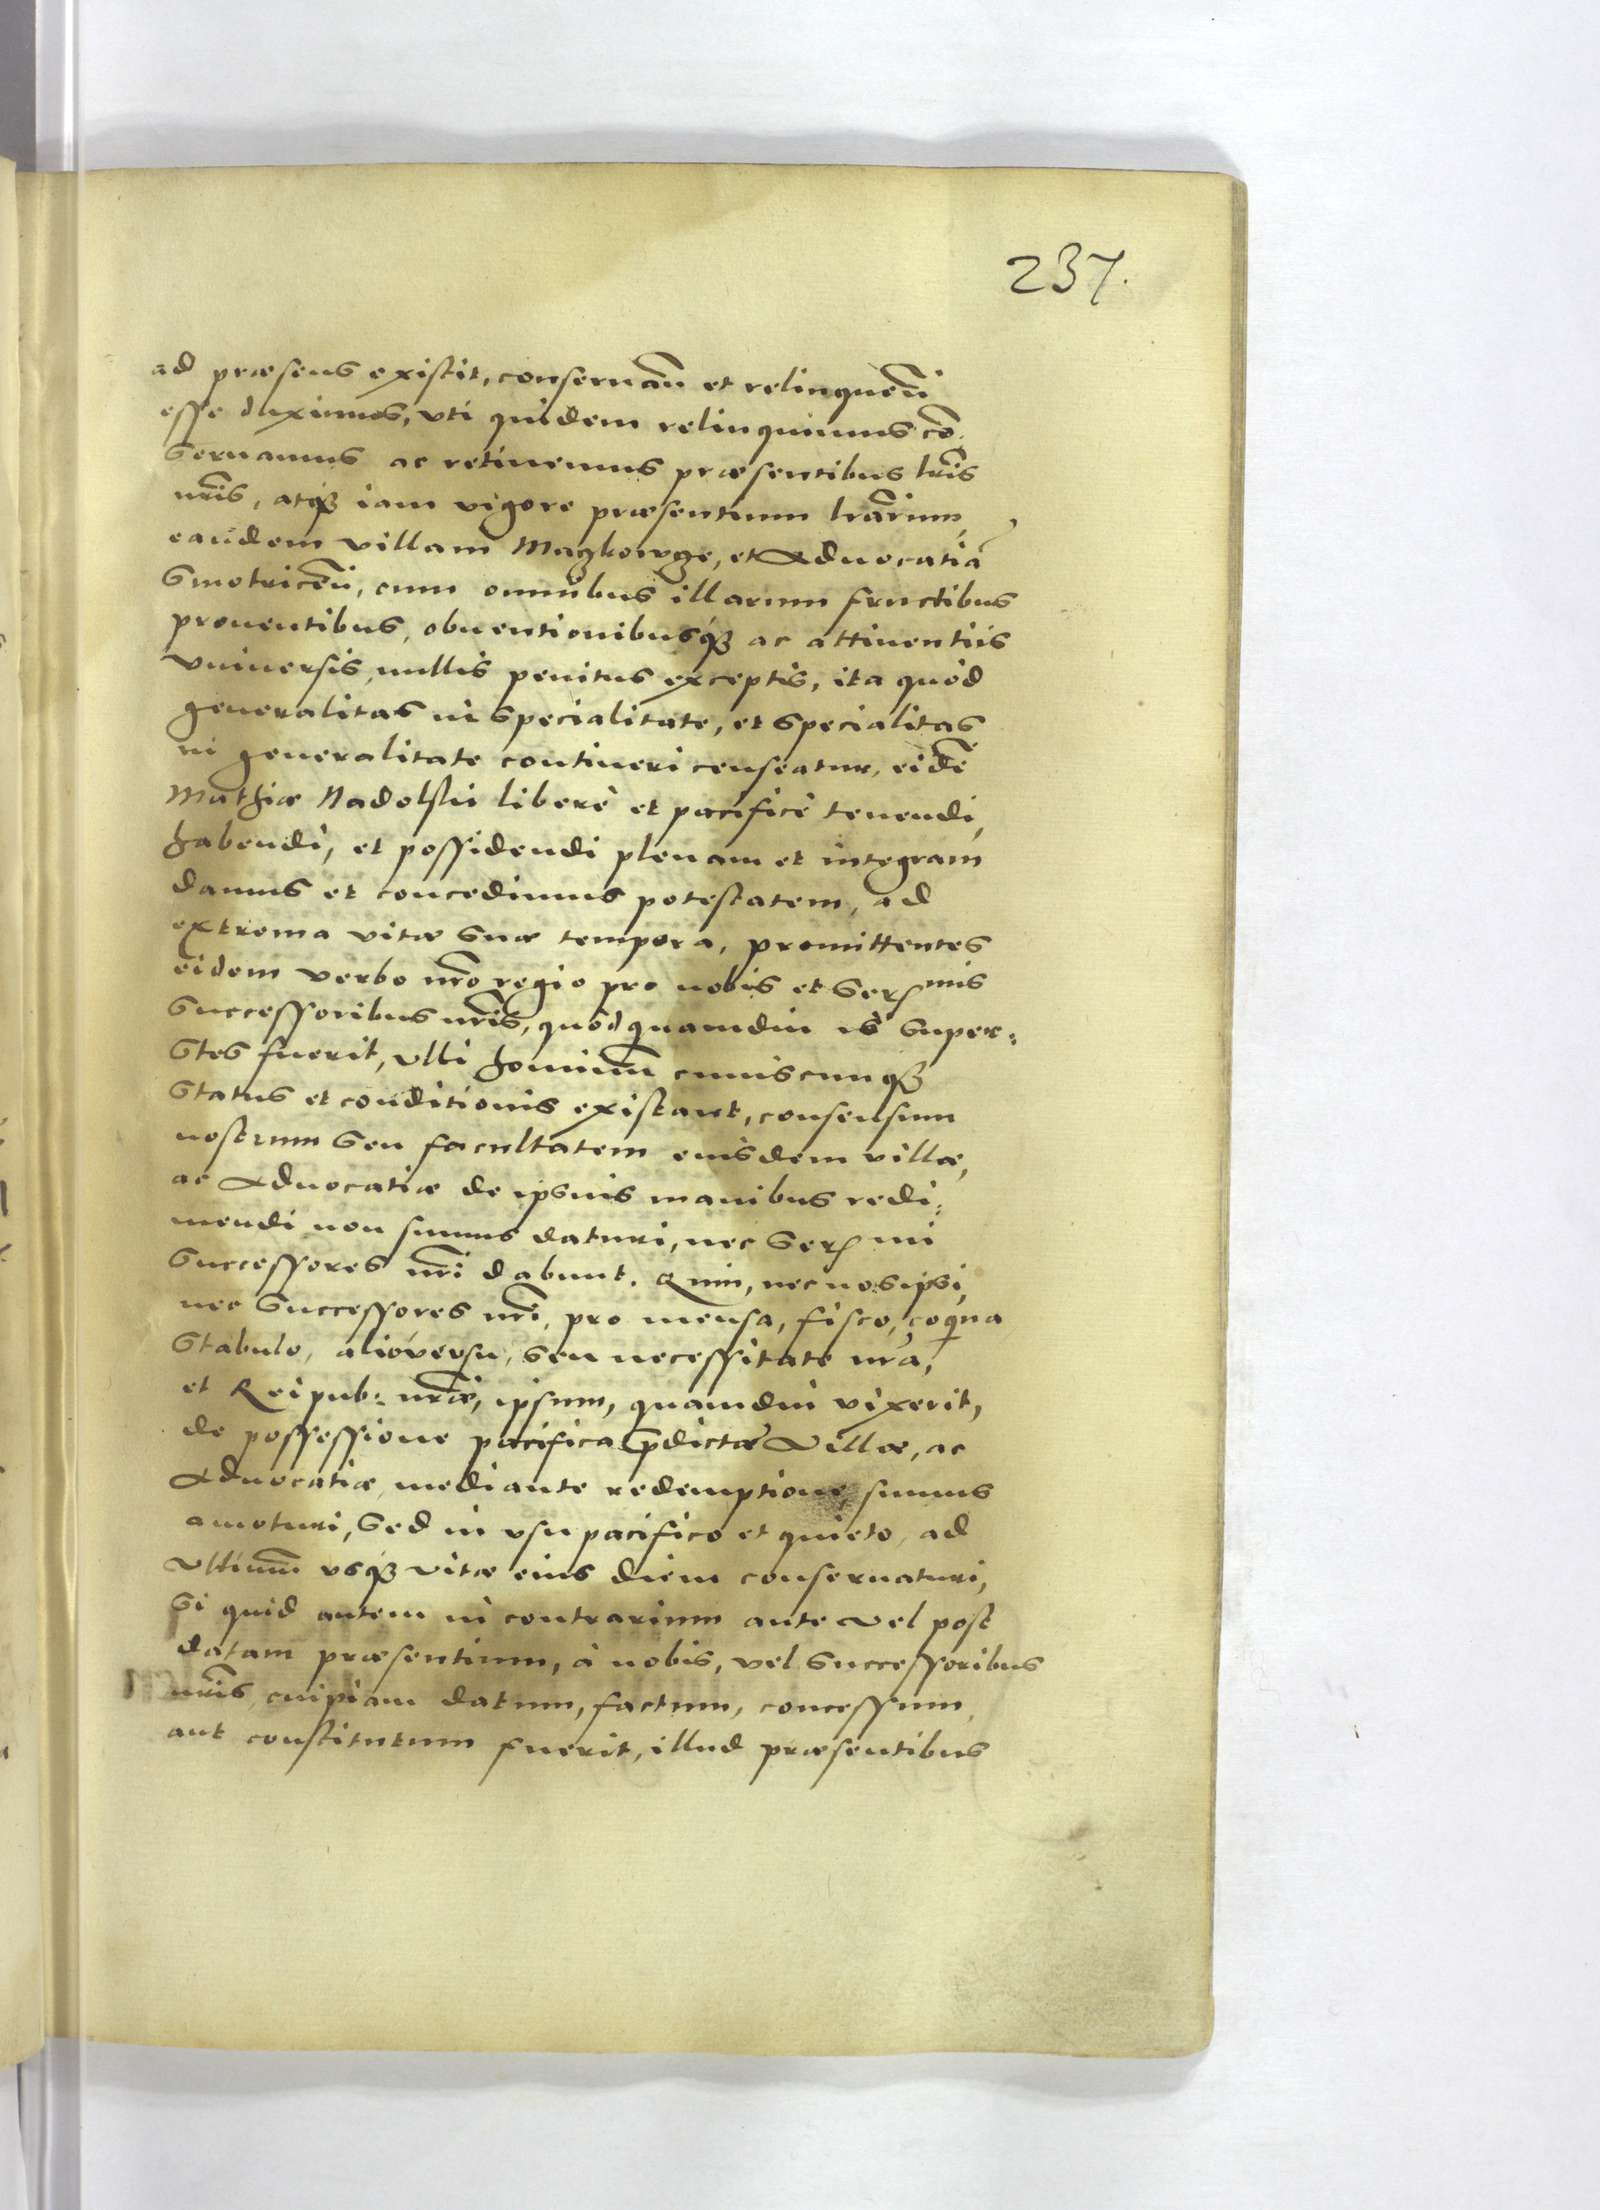 237.
ad præsens existit, conseruañ et relinqueñ
esse duximus, vti quidem relinquimus cõ-
seruamus ac retinemus præsentibus lr̃is
nr̃is, atq₃ iam vigore præsentium lr̃arum,
eandem villam Maczkowcze, et Aduocatiã
Smotriceñ, cum omnibus illarum fructibus
prouentibus, obuentionibusq₃ ac attinentiis
vniuersis, nullis penitus exceptis, ita quòd
generalitas in specialitate, et specialitas
in generalitate contineri censeatur, eidẽ
Mathiæ Nadolski liberè et pacificè tenendi,
habendi, et possidendi plenam et integram
damus et concedimus potestatem, ad
extrema vitæ suæ tempora, promittentes
eidem verbo nr̃o regio pro nobis et Ser^mis
Successoribus nr̃is, quòd quamdiu is super-
stes fuerit, vlli hominum̃ cuiuscunq₃
status et conditionis existant, consensum
nostrum seu facultatem eiusdem villæ,
ac Aduocatiæ de ipsius manibus redi-
mendi non sumus daturi, nec Ser^mi
Successores nr̃i dabunt. Quin, nec nos ipsi,
nec Successores nr̃i, pro mensa, fisco, coquina
Stabulo, aliòversu, seu necessitate nr̃a,
et Reipub: nr̃æ, ipsum, quamdiu vixerit,
de possessione pacifica p̃dictæ Villæ, ac
Aduocatiæ, mediante redemptione, sumus
amoturi, sed in vsu pacifico et quieto, ad
Vltimum̃ vsq₃ vitæ eius diem conseruaturi,
Si quid autem in contrarium ante vel post
datam præsentium, à nobis, vel Successoribus
nr̃is, cuipiam datum, factum, concessum,
aut constitutum fuerit, illud præsentibus